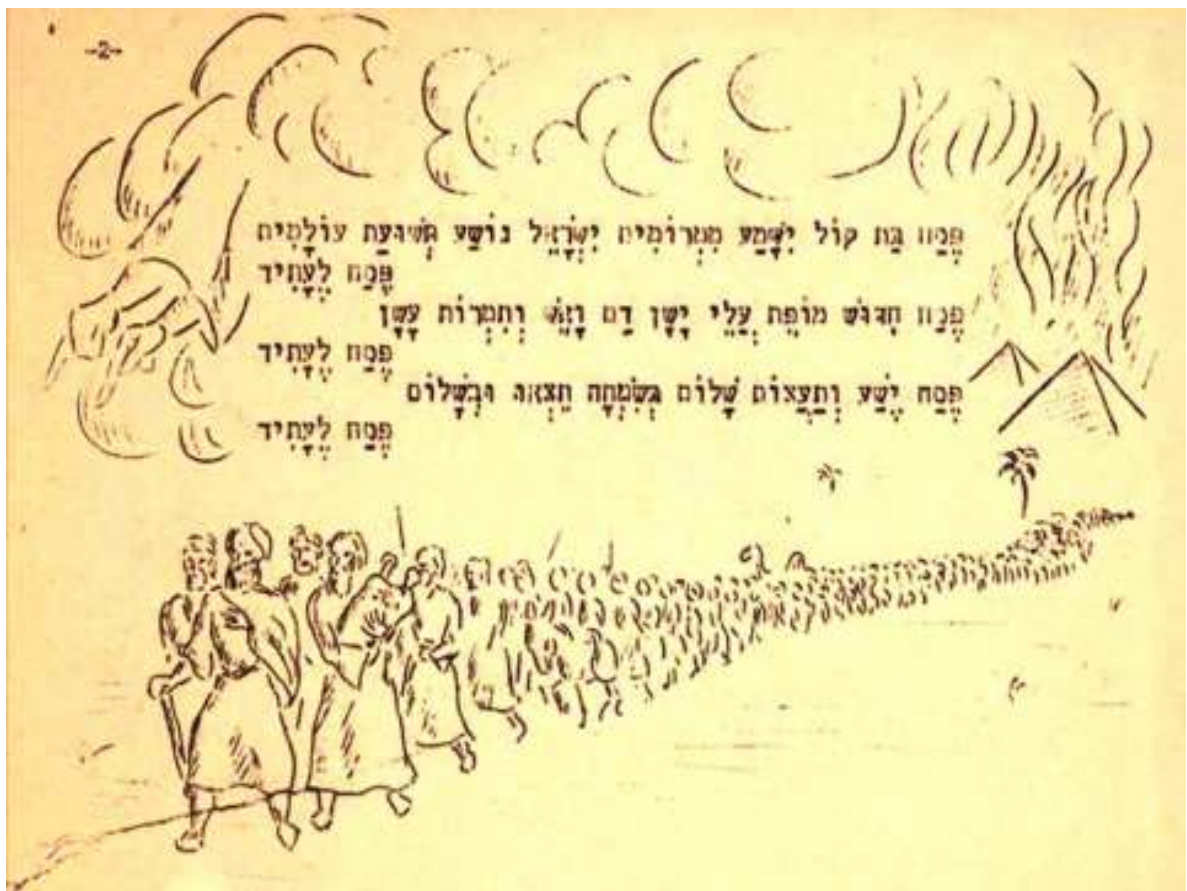 -2-
פֶּסַח בַּת קוֹל יִשָּׁמַע מִמְּרוֹמִים יִשְׂרָאֵל נוֹשַׁע תְּשׁוּעַת עוֹלָמִים
פֶּסַח לֶעָתִיד
פֶּסַח חִדּוּשׁ מוֹפֵת עֲלֵי יָשָׁן דַּם וָאֵשׁ וְתִמְרוֹת עָשָׁן
פֶּסַח לֶעָתִיד
פֶּסַח יֶשַׁע וְתַעֲצוֹם שָׁלוֹם בְּשִׂמְחָה תֵצְאוּ וּבְשָׁלוֹם
פֶּסַח לֶעָתִיד